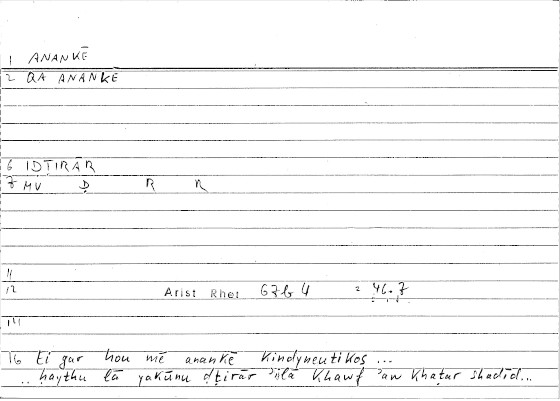 1 ANANKĒ
2 QA ANANKE
6 IDṬIRĀR
7 MV Ḍ R R
11
12 Arist Rhet 67b 4 = 46.7
14
16 ti gar hou mē anankē kindyneutikos ...
.. ḥaythu lā yakūnu ḍṭirār ʾilā khawf ʾaw khaṭar shadīd...